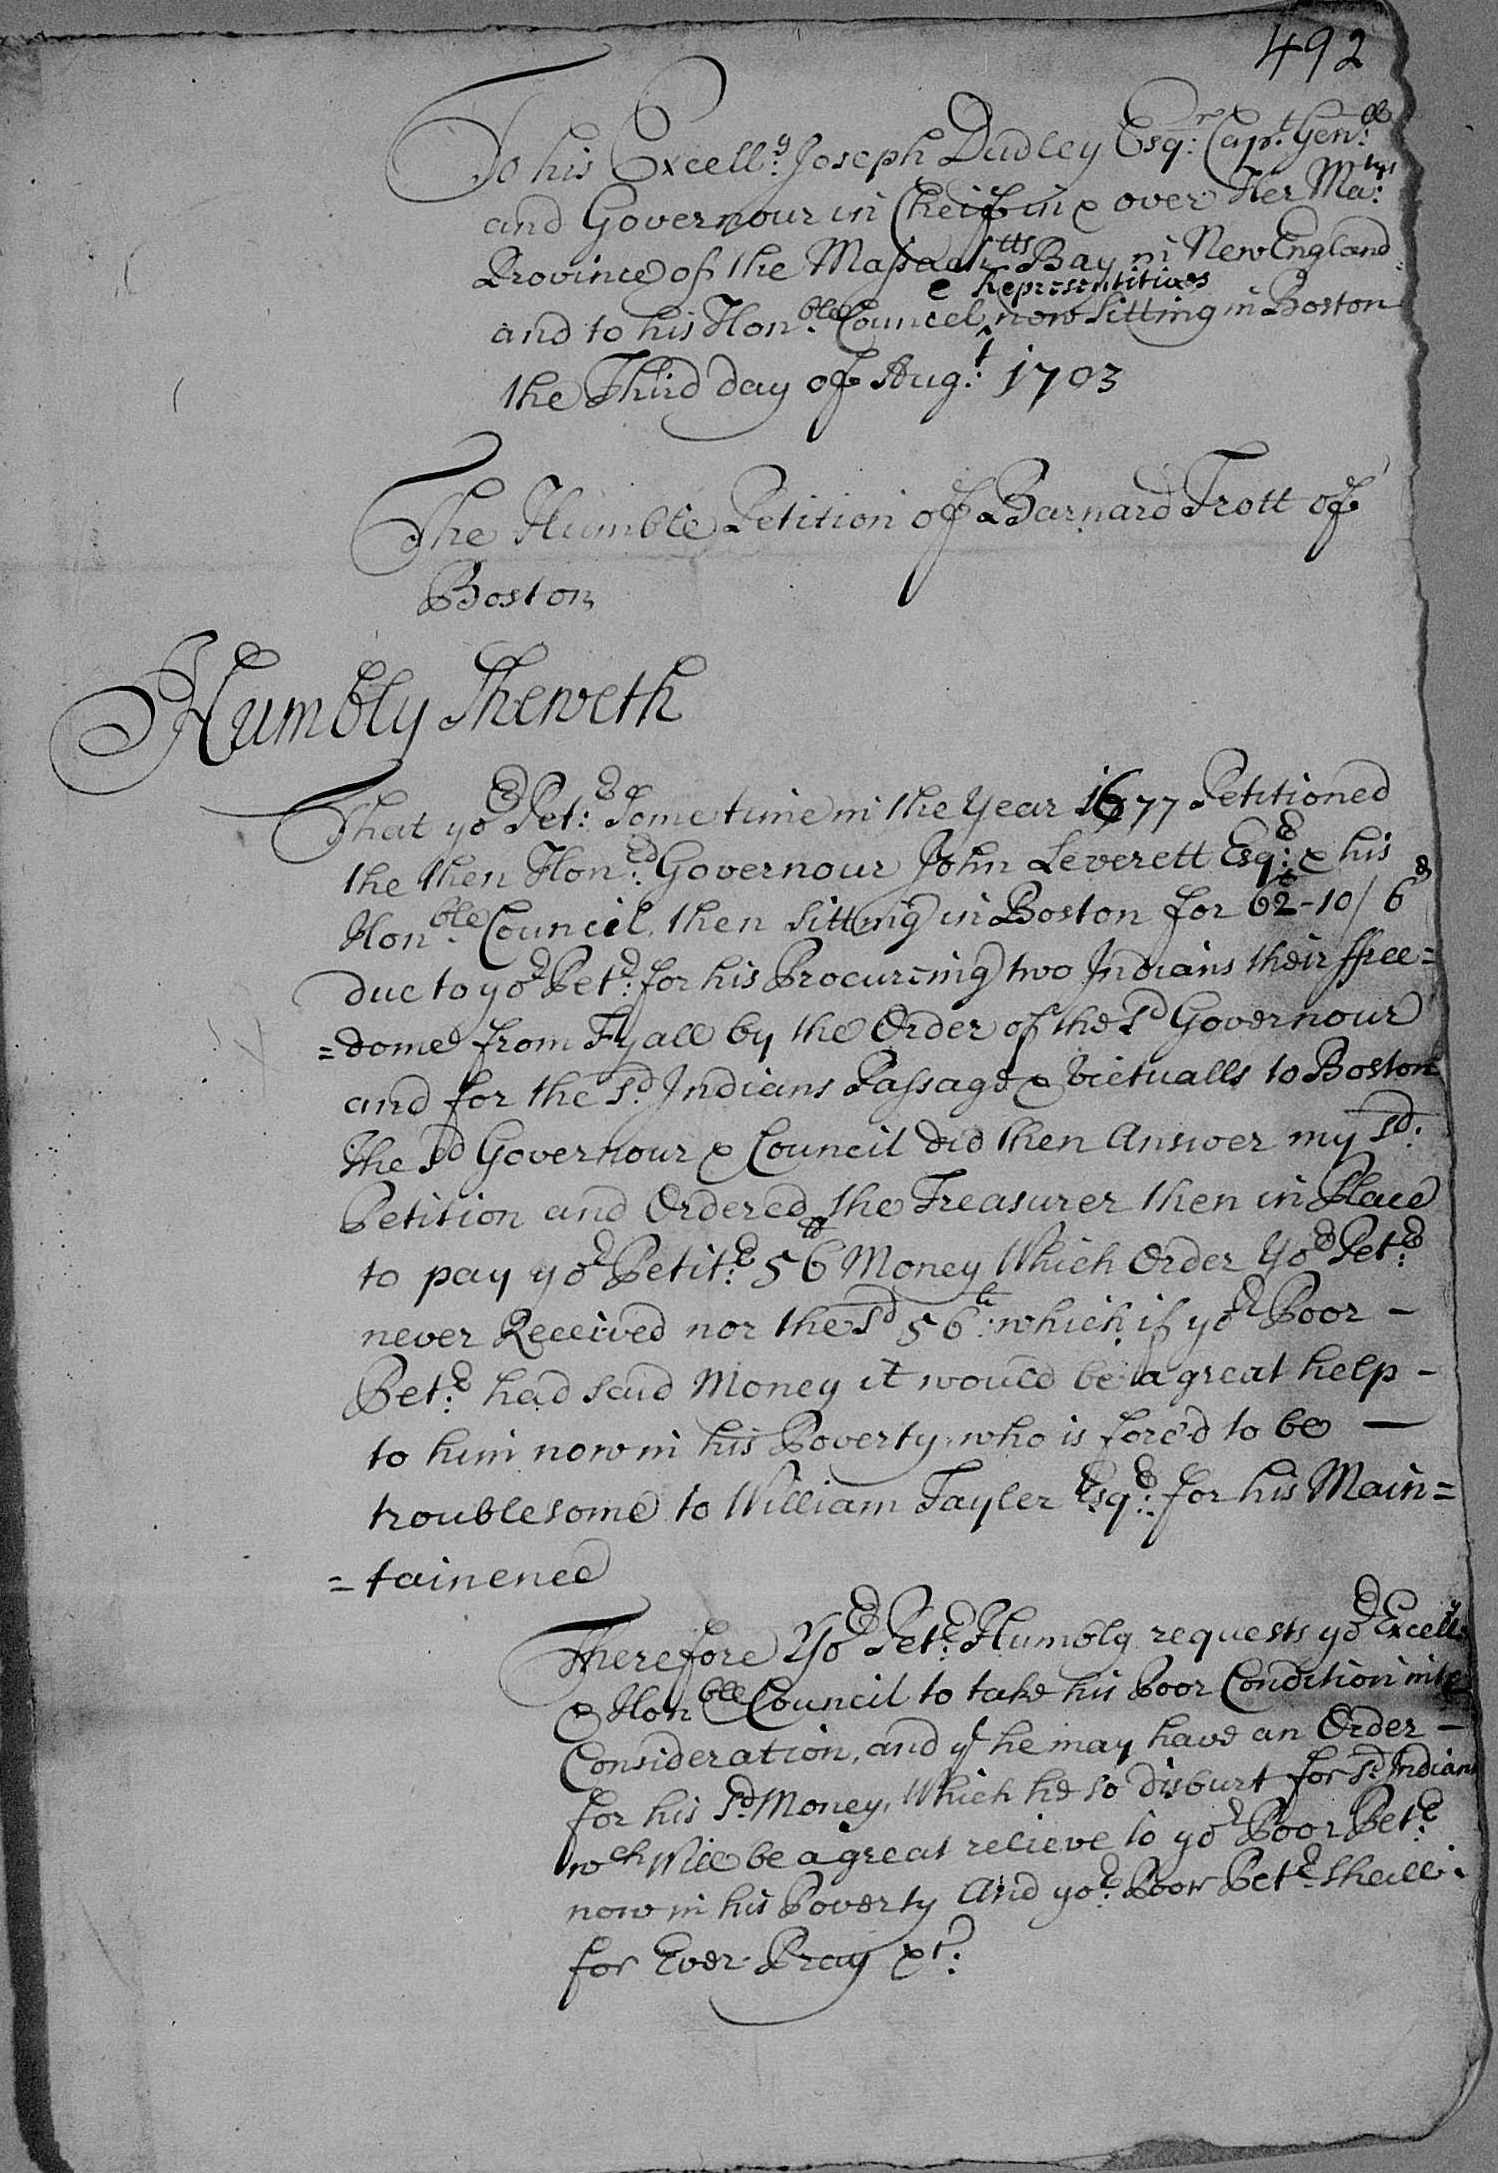 492
To his Excell:y Joseph Dudley Esq:r Cap:t Gen:ll
and Governour in Cheif in & over Her Ma:tys
Province of the Massachtts Bay in New England
& Representitives
and to his Hon:ble Councel ^ now Sitting in Boston
the Third day of Aug:t 1703
The Humble Petition of Barnard Trott of
Boston
Humbly Sheweth
That yor Pet:r Some time in the Year 1677 Petitioned
the then Hon:rd Governour John Leverett Esq:r & his
Hon:ble Council then Sitting in Boston for 62£-10/6d
due to yor Pet:r for his Procureing two Indians their ffree=
=dome from Fyall by the Order of the sd Governour
and for the sd Indians Passage & Victualls to Boston
The sd Governour & Council did then Answer my sd:
Petition and Ordered the Treasurer then in Place
to pay yor Petit:r 56tt Money Which Order Yor Pet:r
never Received nor the sd 56:li which if yor Poor -
Pet:r had said Money it would be a great help -
to him now in his Poverty, who is forc'd to be —
troublesome to William Tayler Esq:r for his Main=
=tainence
Therefore Yor Pet:r Humbly requests yor Excelly
& Honble Council to take his Poor Condition into
Consideration, and yt he may have an Order -
for his sd Money, Which he so disburt for sd Indians
wch Will be a great relieve to yor Poor Pet:r
now in his Poverty And yor Poor Pet:r Shall
for Ever Pray &t: